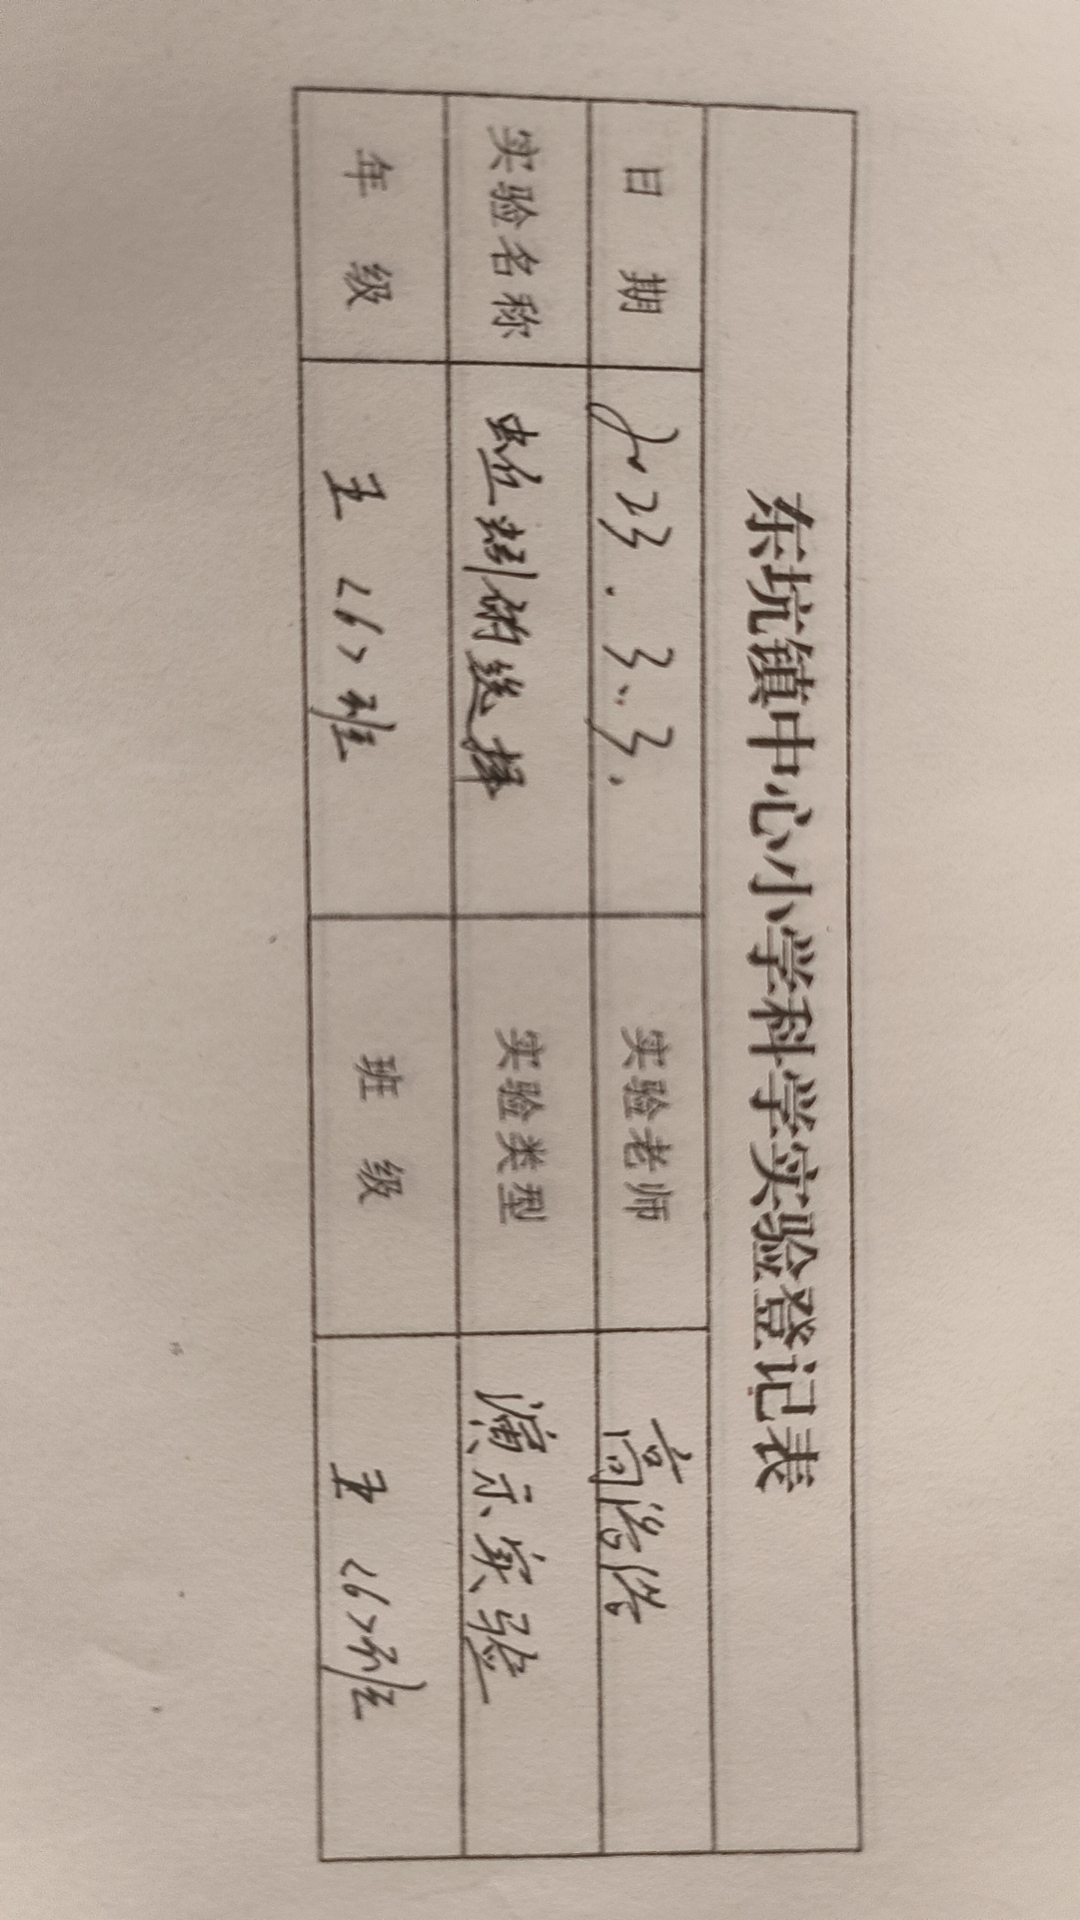 东坑镇中心小学科学实验登记表
日 期 2023.3.3. 实验老师 高浩浩
实验名称 蚯蚓的选择 实验类型 演示实验
年 级 五<6>班 班 级 五<6>班